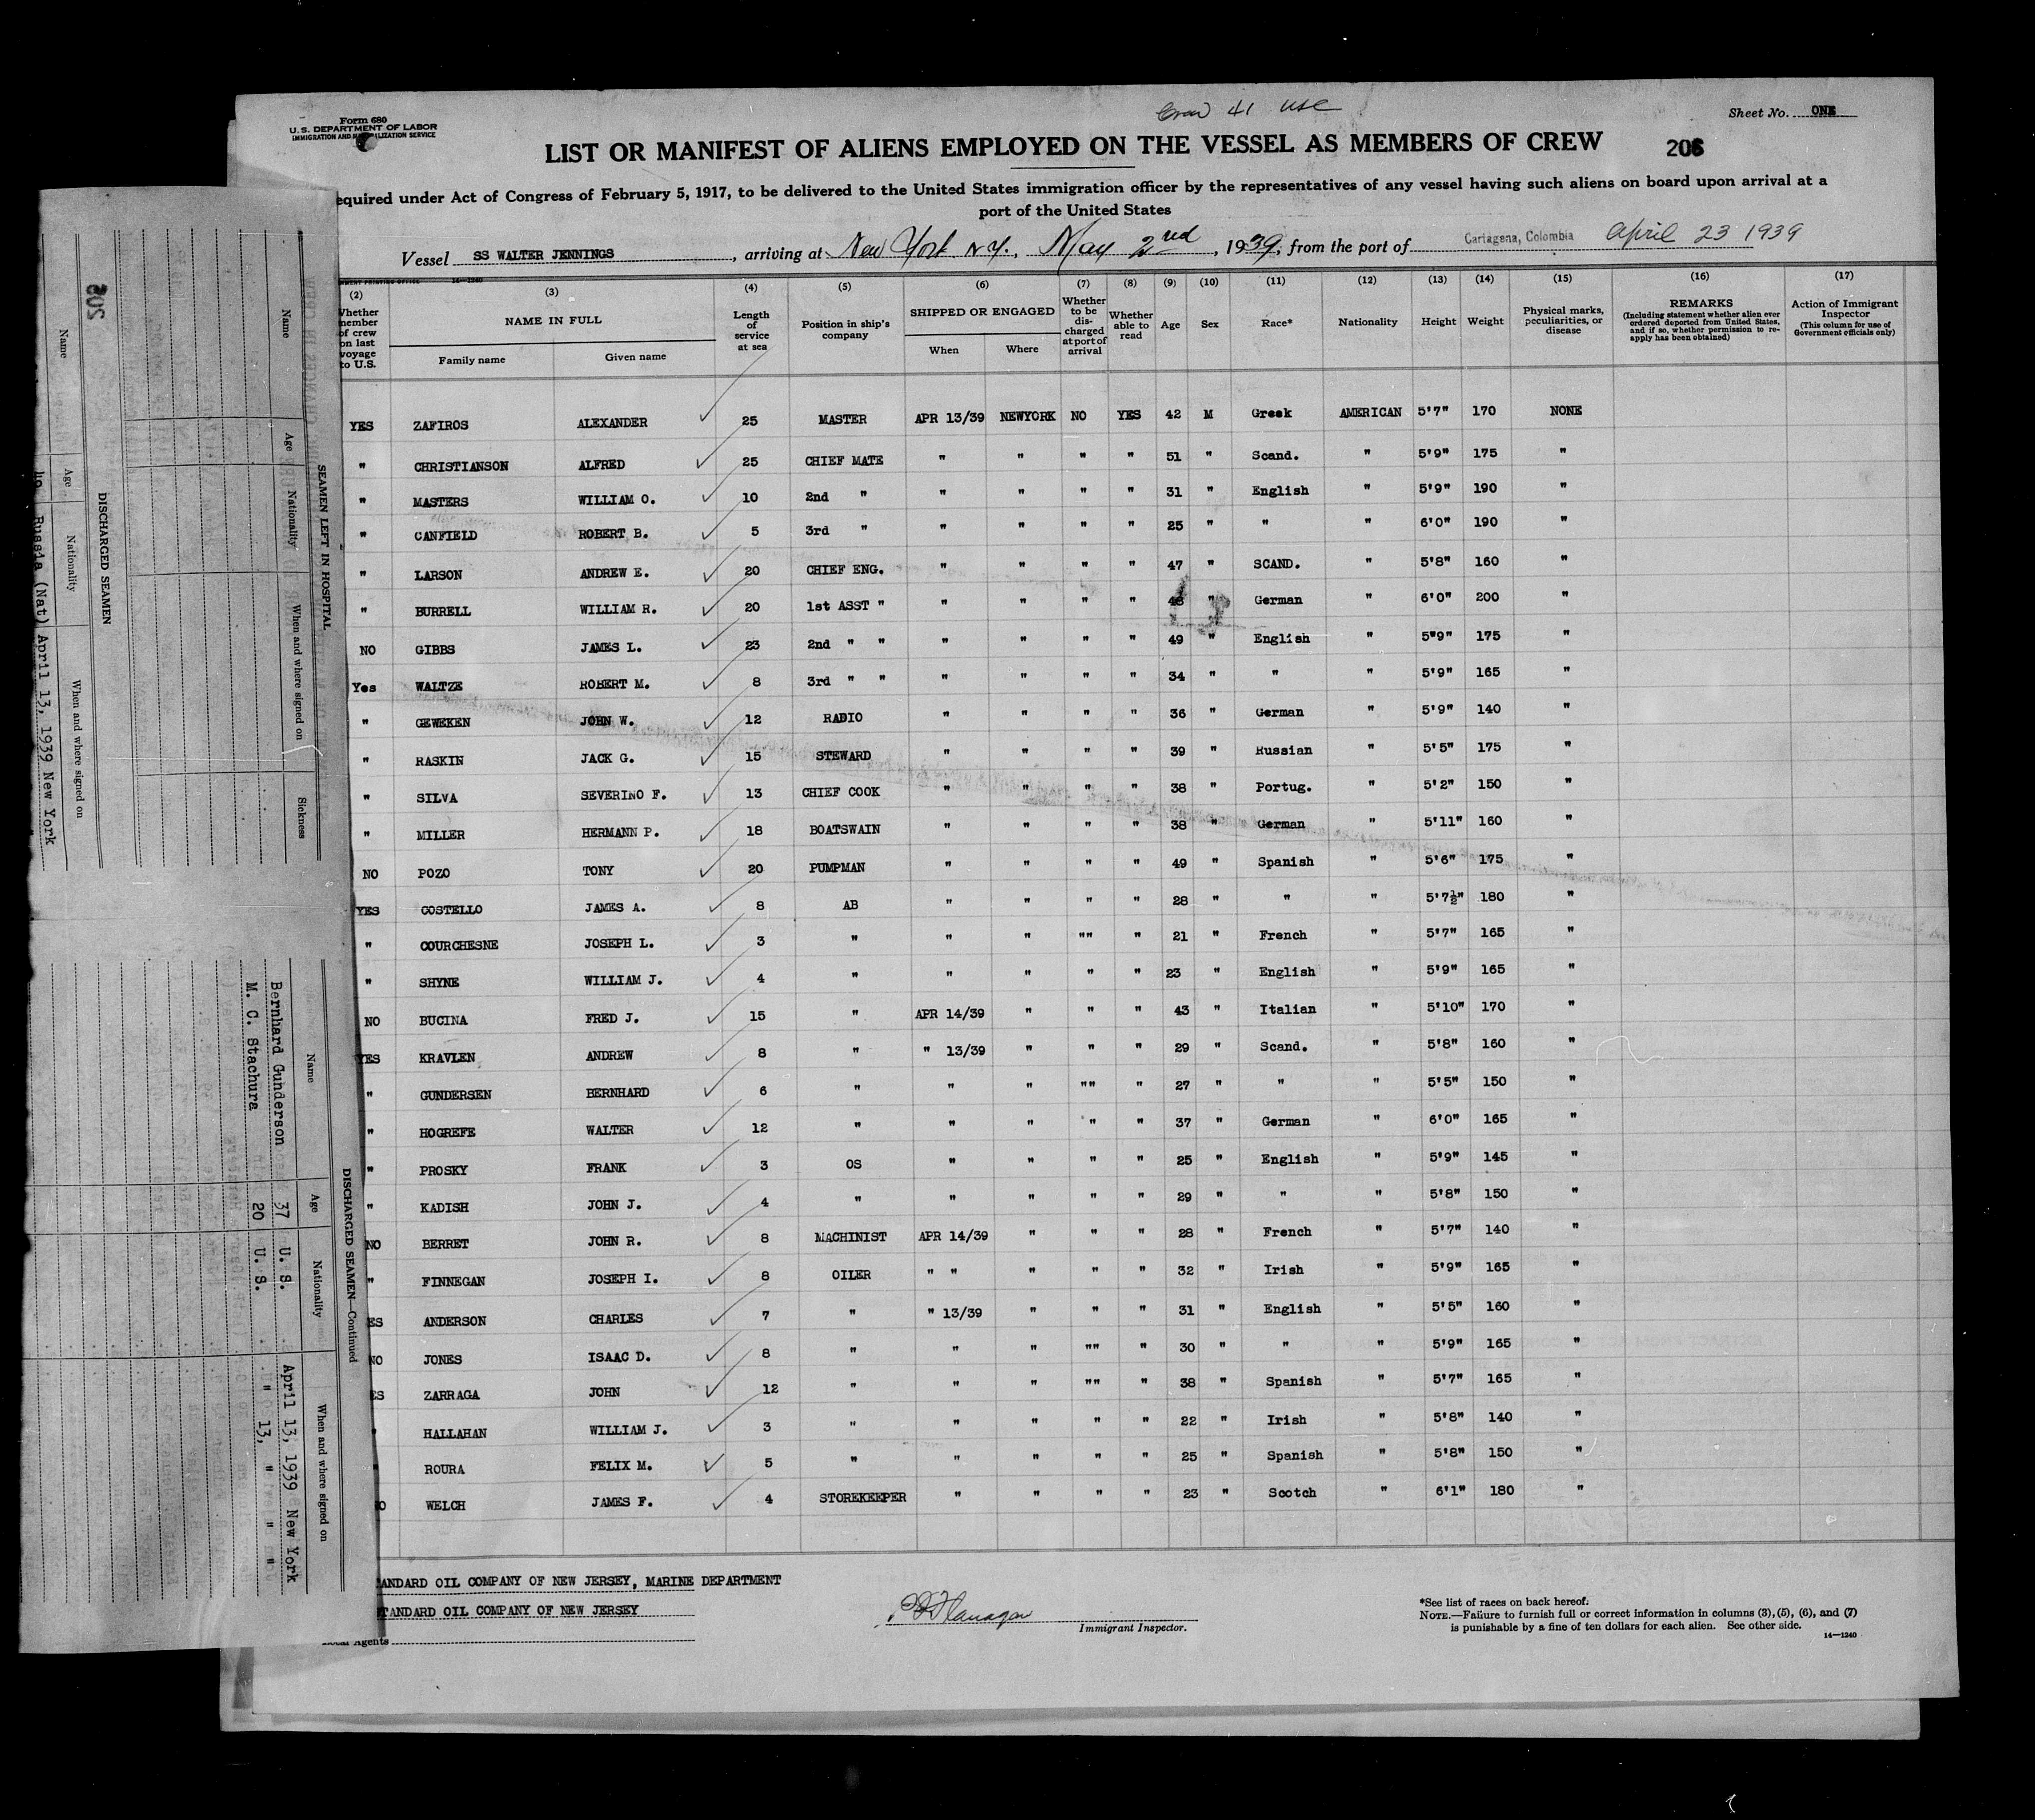 Form 680
U.S. DEPARTMENT OF LABOR
IMMIGRATION AND NATURALIZATION SERVICE
Crew 41 USC
Sheet No. ONE
LIST OR MANIFEST OF ALIENS EMPLOYED ON THE VESSEL AS MEMBERS OF CREW
206
equired under Act of Congress of February 5, 1917, to be delivered to the United States immigration officer by the representatives of any vessel having such aliens on board upon arrival at a
port of the United States
Vessel SS WALTER JENNINGS, arriving at New York N.Y., May 2nd, 1939, from the port of Cartagena, Colombia April 23 1939
(2) Whether member of crew on last voyage to U.S. (3) NAME IN FULL Family name Given name (4) Length of service at sea (5) Position in ship's company (6) SHIPPED OR ENGAGED When Where (7) Whether to be discharged at port of arrival (8) Whether able to read (9) Age (10) Sex (11) Race* (12) Nationality (13) Height (14) Weight (15) Physical marks, peculiarities, or disease (16) REMARKS (Including statement whether alien ever ordered deported from United States, and if so, whether permission to reapply has been obtained) (17) Action of Immigrant Inspector (This column for use of Government officials only)
YES ZAFIROS ALEXANDER 25 MASTER APR 13/39 NEWYORK NO YES 42 M Greek AMERICAN 5'7" 170 NONE
" CHRISTIANSON ALFRED 25 CHIEF MATE " " " " 51 " Scand. " 5'9" 175 "
" MASTERS WILLIAM O. 10 2nd " " " " " 31 " English " 5'9" 190 "
" CANFIELD ROBERT B. 5 3rd " " " " " 25 " " " 6'0" 190 "
" LARSON ANDREW E. 20 CHIEF ENG. " " " " 47 " SCAND. " 5'8" 160 "
" BURRELL WILLIAM R. 20 1st ASST " " " " " " German " 6'0" 200 "
NO GIBBS JAMES L. 23 2nd " " " " " " 49 " English " 5"9" 175 "
Yes WALTZE ROBERT M. 8 3rd " " " " " " 34 " " " 5'9" 165 "
" GEWEKEN JOHN W. 12 RADIO " " " " 36 " German " 5'9" 140 "
" RASKIN JACK G. 15 STEWARD " " " " 39 " Russian " 5'5" 175 "
" SILVA SEVERINO F. 13 CHIEF COOK " " " " 38 " Portug. " 5'2" 150 "
" MILLER HERMANN P. 18 BOATSWAIN " " " " 38 " German " 5'11" 160 "
NO POZO TONY 20 PUMPMAN " " " " 49 " Spanish " 5'6" 175 "
YES COSTELLO JAMES A. 8 AB " " " " 28 " " " 5'7½" 180 "
" COURCHESNE JOSEPH L. 3 " " " "" " 21 " French " 5'7" 165 "
" SHYNE WILLIAM J. 4 " " " " " 23 " English " 5'9" 165 "
NO BUCINA FRED J. 15 " APR 14/39 " " " 43 " Italian " 5'10" 170 "
YES KRAVLEN ANDREW 8 " " 13/39 " " " 29 " Scand. " 5'8" 160 "
" GUNDERSEN BERNHARD 6 " " " "" " 27 " " " 5'5" 150 "
" HOGREFE WALTER 12 " " " " " 37 " German " 6'0" 165 "
" PROSKY FRANK 3 OS " " " " 25 " English " 5'9" 145 "
" KADISH JOHN J. 4 " " " " " 29 " " " 5'8" 150 "
NO BERRET JOHN R. 8 MACHINIST APR 14/39 " " " 28 " French " 5'7" 140 "
" FINNEGAN JOSEPH I. 8 OILER " " " " " 32 " Irish " 5'9" 165 "
ES ANDERSON CHARLES 7 " " 13/39 " " " 31 " English " 5'5" 160 "
NO JONES ISAAC D. 8 " " " "" " 30 " " " 5'9" 165 "
ES ZARRAGA JOHN 12 " " " "" " 38 " Spanish " 5'7" 165 "
" HALLAHAN WILLIAM J. 3 " " " " " 22 " Irish " 5'8" 140 "
" ROURA FELIX M. 5 " " " " " 25 " Spanish " 5'8" 150 "
O WELCH JAMES F. 4 STOREKEEPER " " " " 23 " Scotch " 6'1" 180 "
ANDARD OIL COMPANY OF NEW JERSEY, MARINE DEPARTMENT
TANDARD OIL COMPANY OF NEW JERSEY
Local Agents
Flanagan
Immigrant Inspector.
*See list of races on back hereof.
NOTE.—Failure to furnish full or correct information in columns (3), (5), (6), and (7)
is punishable by a fine of ten dollars for each alien. See other side.
14—1240
205
SEAMEN LEFT IN HOSPITAL
Name Age Nationality When and where signed on Sickness
DISCHARGED SEAMEN
Name Age Nationality When and where signed on
Russia (Nat) April 13, 1939 New York
DISCHARGED SEAMEN—Continued
Name Age Nationality When and where signed on
Bernhard Gunderson 37 U. S. April 13, 1939 New York
M. C. Stachura 20 U. S. " 13, " "